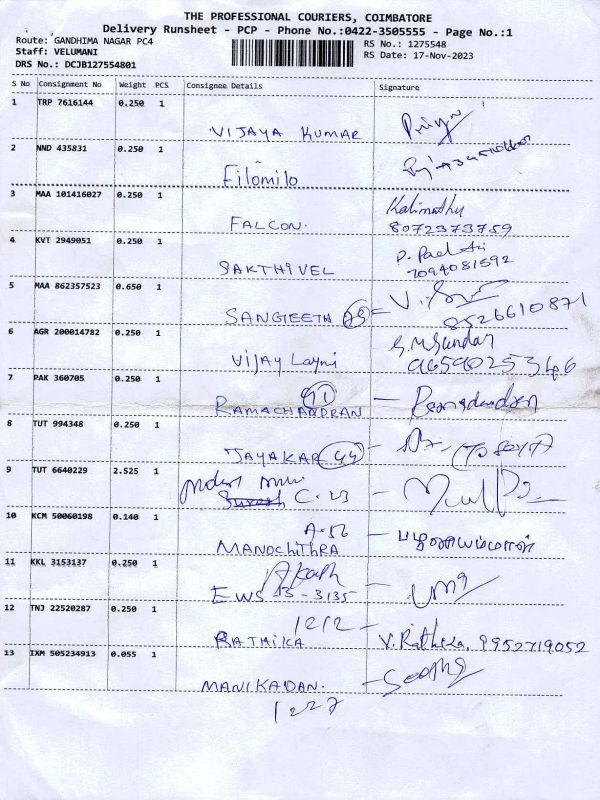 THE PROFESSIONAL COURIERS, COIMBATORE
Delivery Runsheet - PCP - Phone No.:0422-3505555 - Page No.:1
Route: GANDHIMA NAGAR PC4
RS No.: 1275548
Staff: VELUMANI
RS Date: 17-Nov-2023
DRS No.: DCJB127554801
S No Consignment No Weight PCS Consignee Details Signature
1 TRP 7616144 0.250 1
VIJAYA KUMAR Priya
2 NND 435831 0.250 1
Filomilo
3 MAA 101416027 0.250 1 Kalimuthu
FALCON. 8072373759
4 KVT 2949051 0.250 1
SAKTHIVEL 7094081592
5 MAA 862357523 0.650 1
SANGEETHA 8526610871
6 AGR 200014782 0.250 1 S.M Sundar
Vijay Laxmi 9659025346
7 PAK 360705 0.250 1
RAMACHANDRAN
8 TUT 994348 0.250 1
JAYAKAR 44
9 TUT 6640229 2.525 1
C. 23
10 KCM 50060198 0.140 1 A-56
MANOCHITHRA - பழனியம்மாள்
11 KKL 3153137 0.250 1 Akash
EWS 13-3135 - uma
12 TNJ 22520287 0.250 1 1212
RATHIKA V. Rathika, 9952719052
13 IXM 505234913 0.055 1
MANIKADAN.
1227